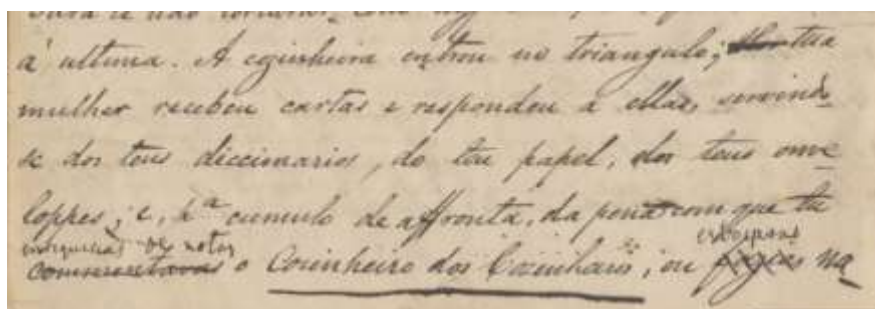 á ultima. A cozinheira entrou no triangulo; tua
mulher recebeu cartas e respondeu a ellas, servindo
se dos teus diccionarios, do teu papel, dos teus enve
loppes; e, pª cumulo de affronta, da pena com que tu
enriquecias de notas
commentavas o Cosinheiro dos Cosinheiros; ou na